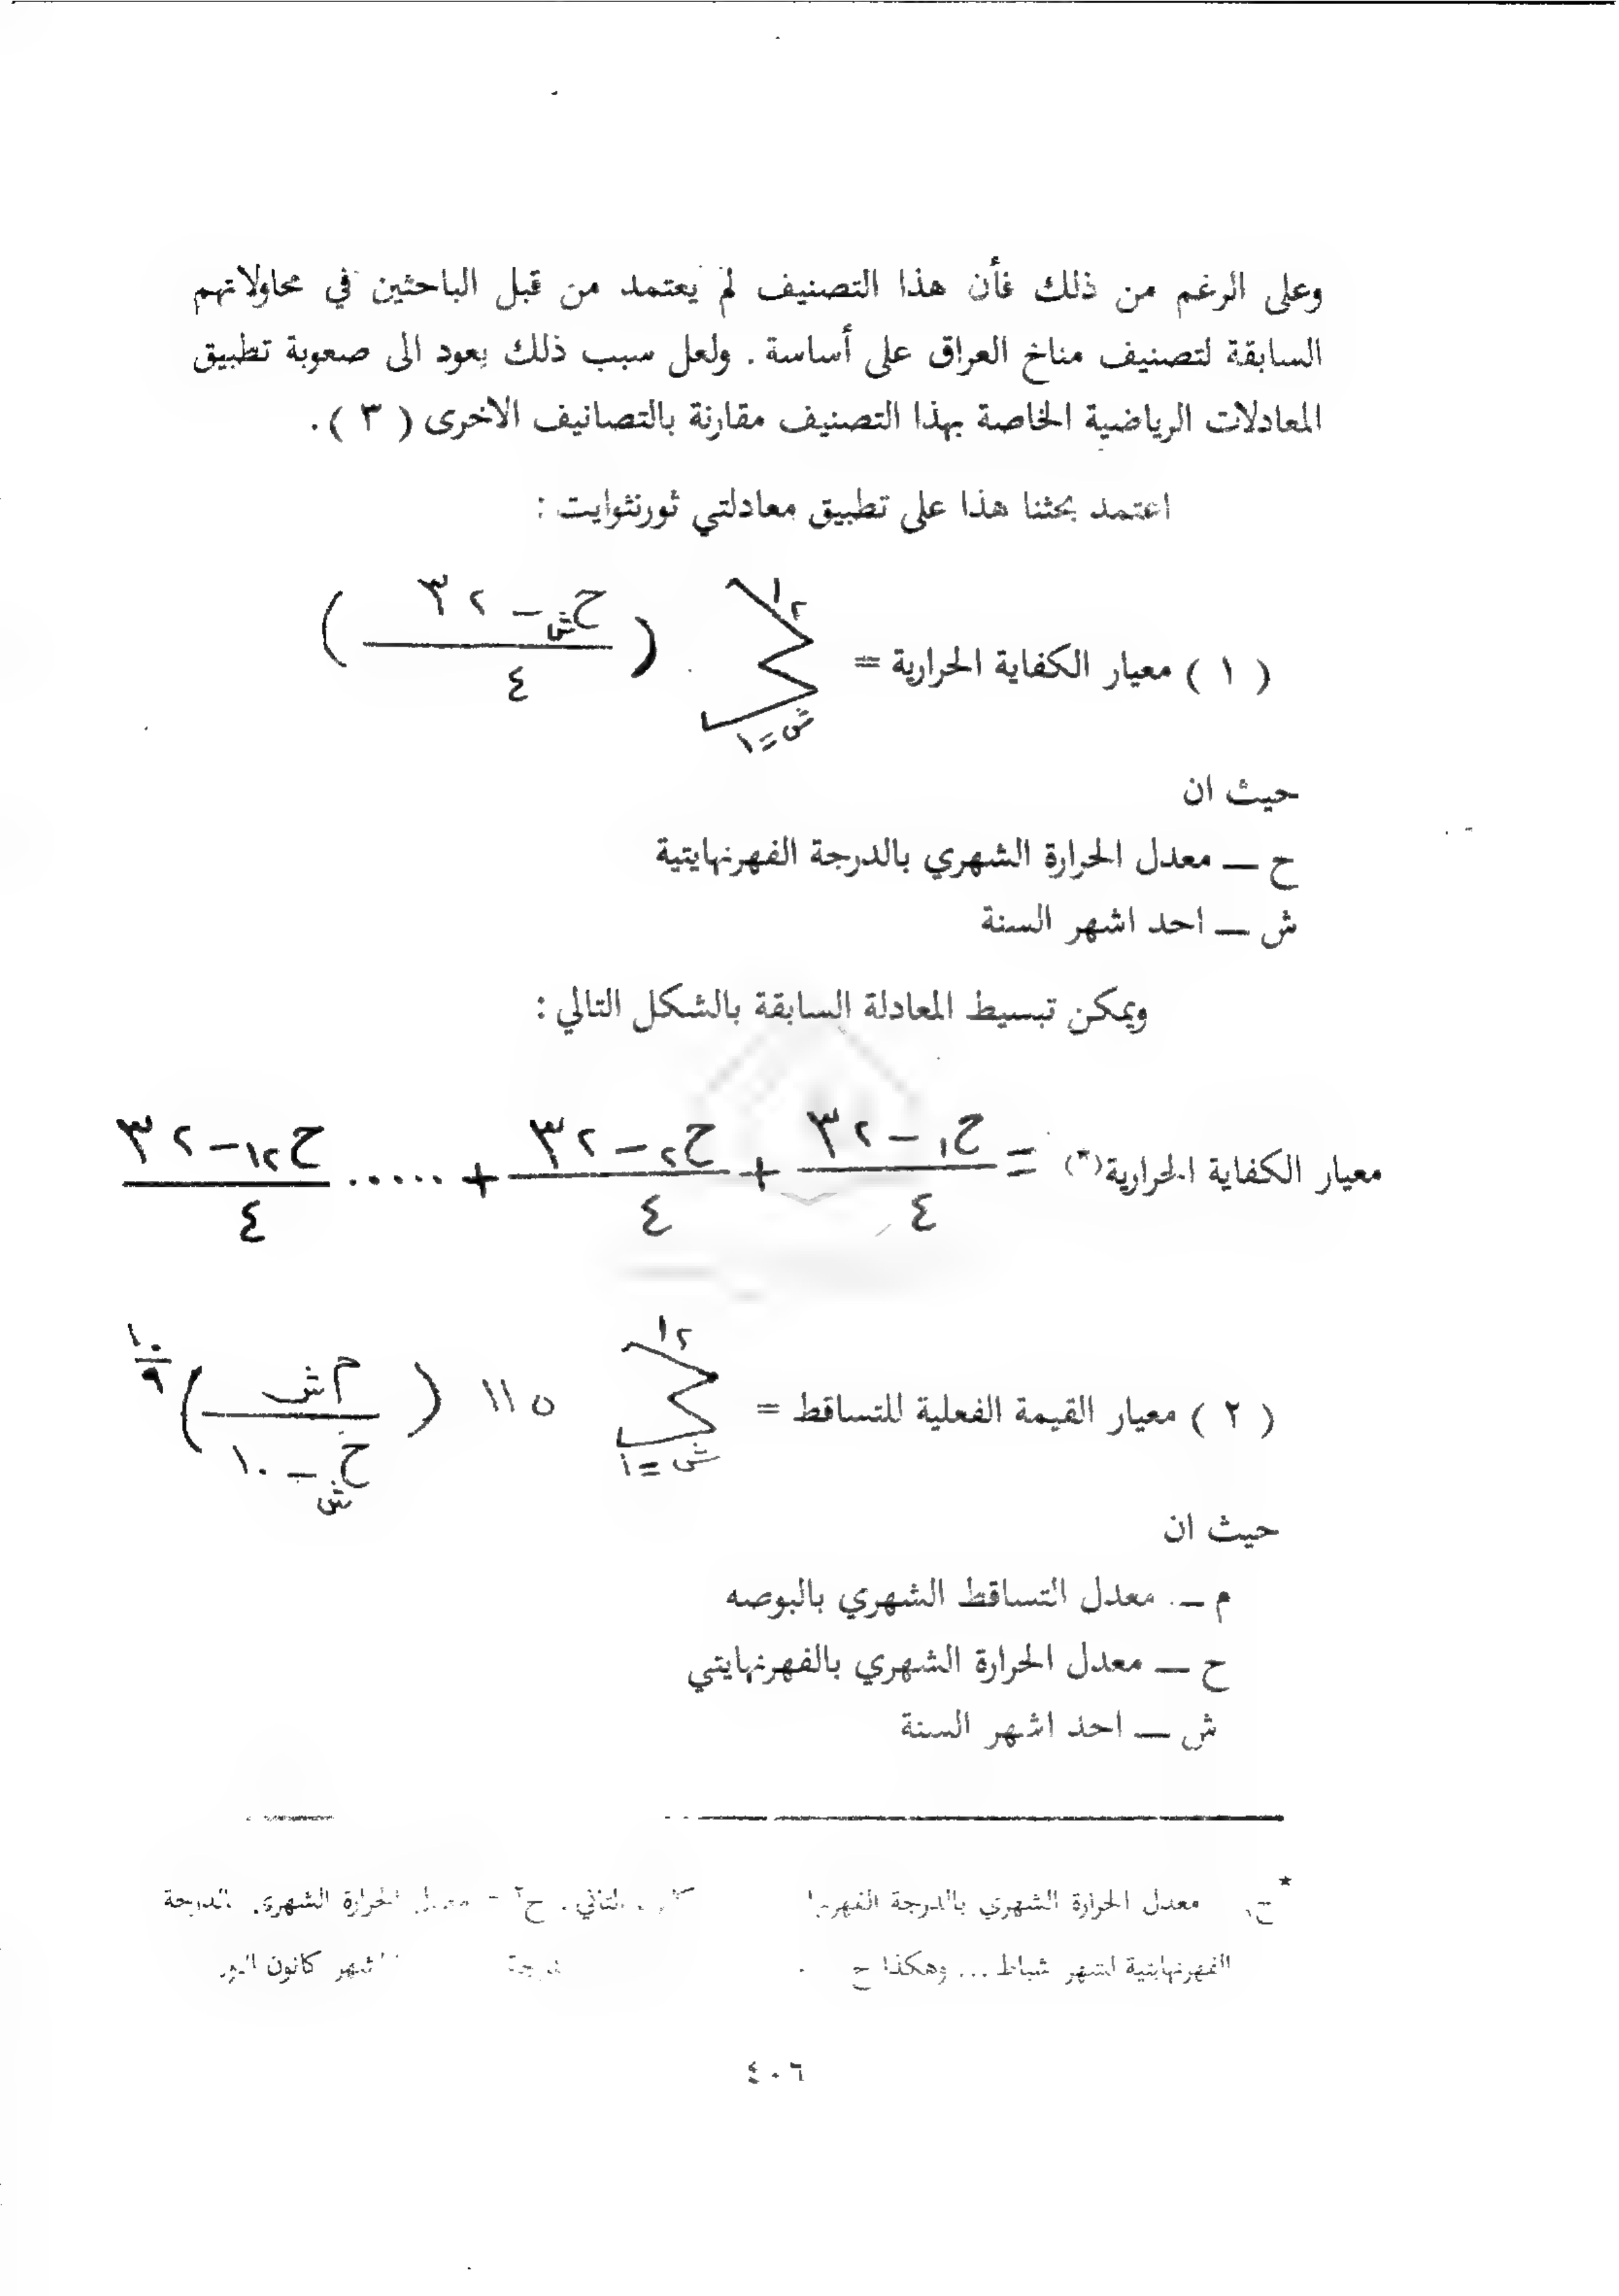 وعلى الرغم من ذلك فأن هذا التصنيف لم يعتمد من قبل الباحثين في محاولاتهم
السابقة لتصنيف مناخ العراق على أساسة . ولعل سبب ذلك يعود الى صعوبة تطبيق
المعادلات الرياضية الخاصة بهذا التصنيف مقارنة بالتصانيف الاخرى ( ٣ ) .
اعتمد بحثنا هذا على تطبيق معادلتي ثورنثوايت :
( ١ ) معيار الكفاية الحرارية = ∑ ١٢ ش=١ ( ح ش − ٣٢ / ٤ )
حيث ان
ح — معدل الحرارة الشهري بالدرجة الفهرنهايتية
ش — احد اشهر السنة
ويمكن تبسيط المعادلة السابقة بالشكل التالي :
معيار الكفاية الحرارية(*) = ح١ − ٣٢ / ٤ + ح٢ − ٣٢ / ٤ + ..... ح١٢ − ٣٢ / ٤
( ٢ ) معيار القيمة الفعلية للتساقط = ∑ ١٢ ش=١ ١١٥ ( م ش / ح ش − ١٠ ) ١٠/٩
حيث ان
م — معدل التساقط الشهري بالبوصه
ح — معدل الحرارة الشهري بالفهرنهايتي
ش — احد اشهر السنة
* ح١ معدل الحرارة الشهري بالدرجة الثاني . ح٢ = معدل الحرارة الشهري بالدرجة
الفهرنهايتية لشهر شباط ... وهكذا ح درجة لشهر كانون
٤٠٦